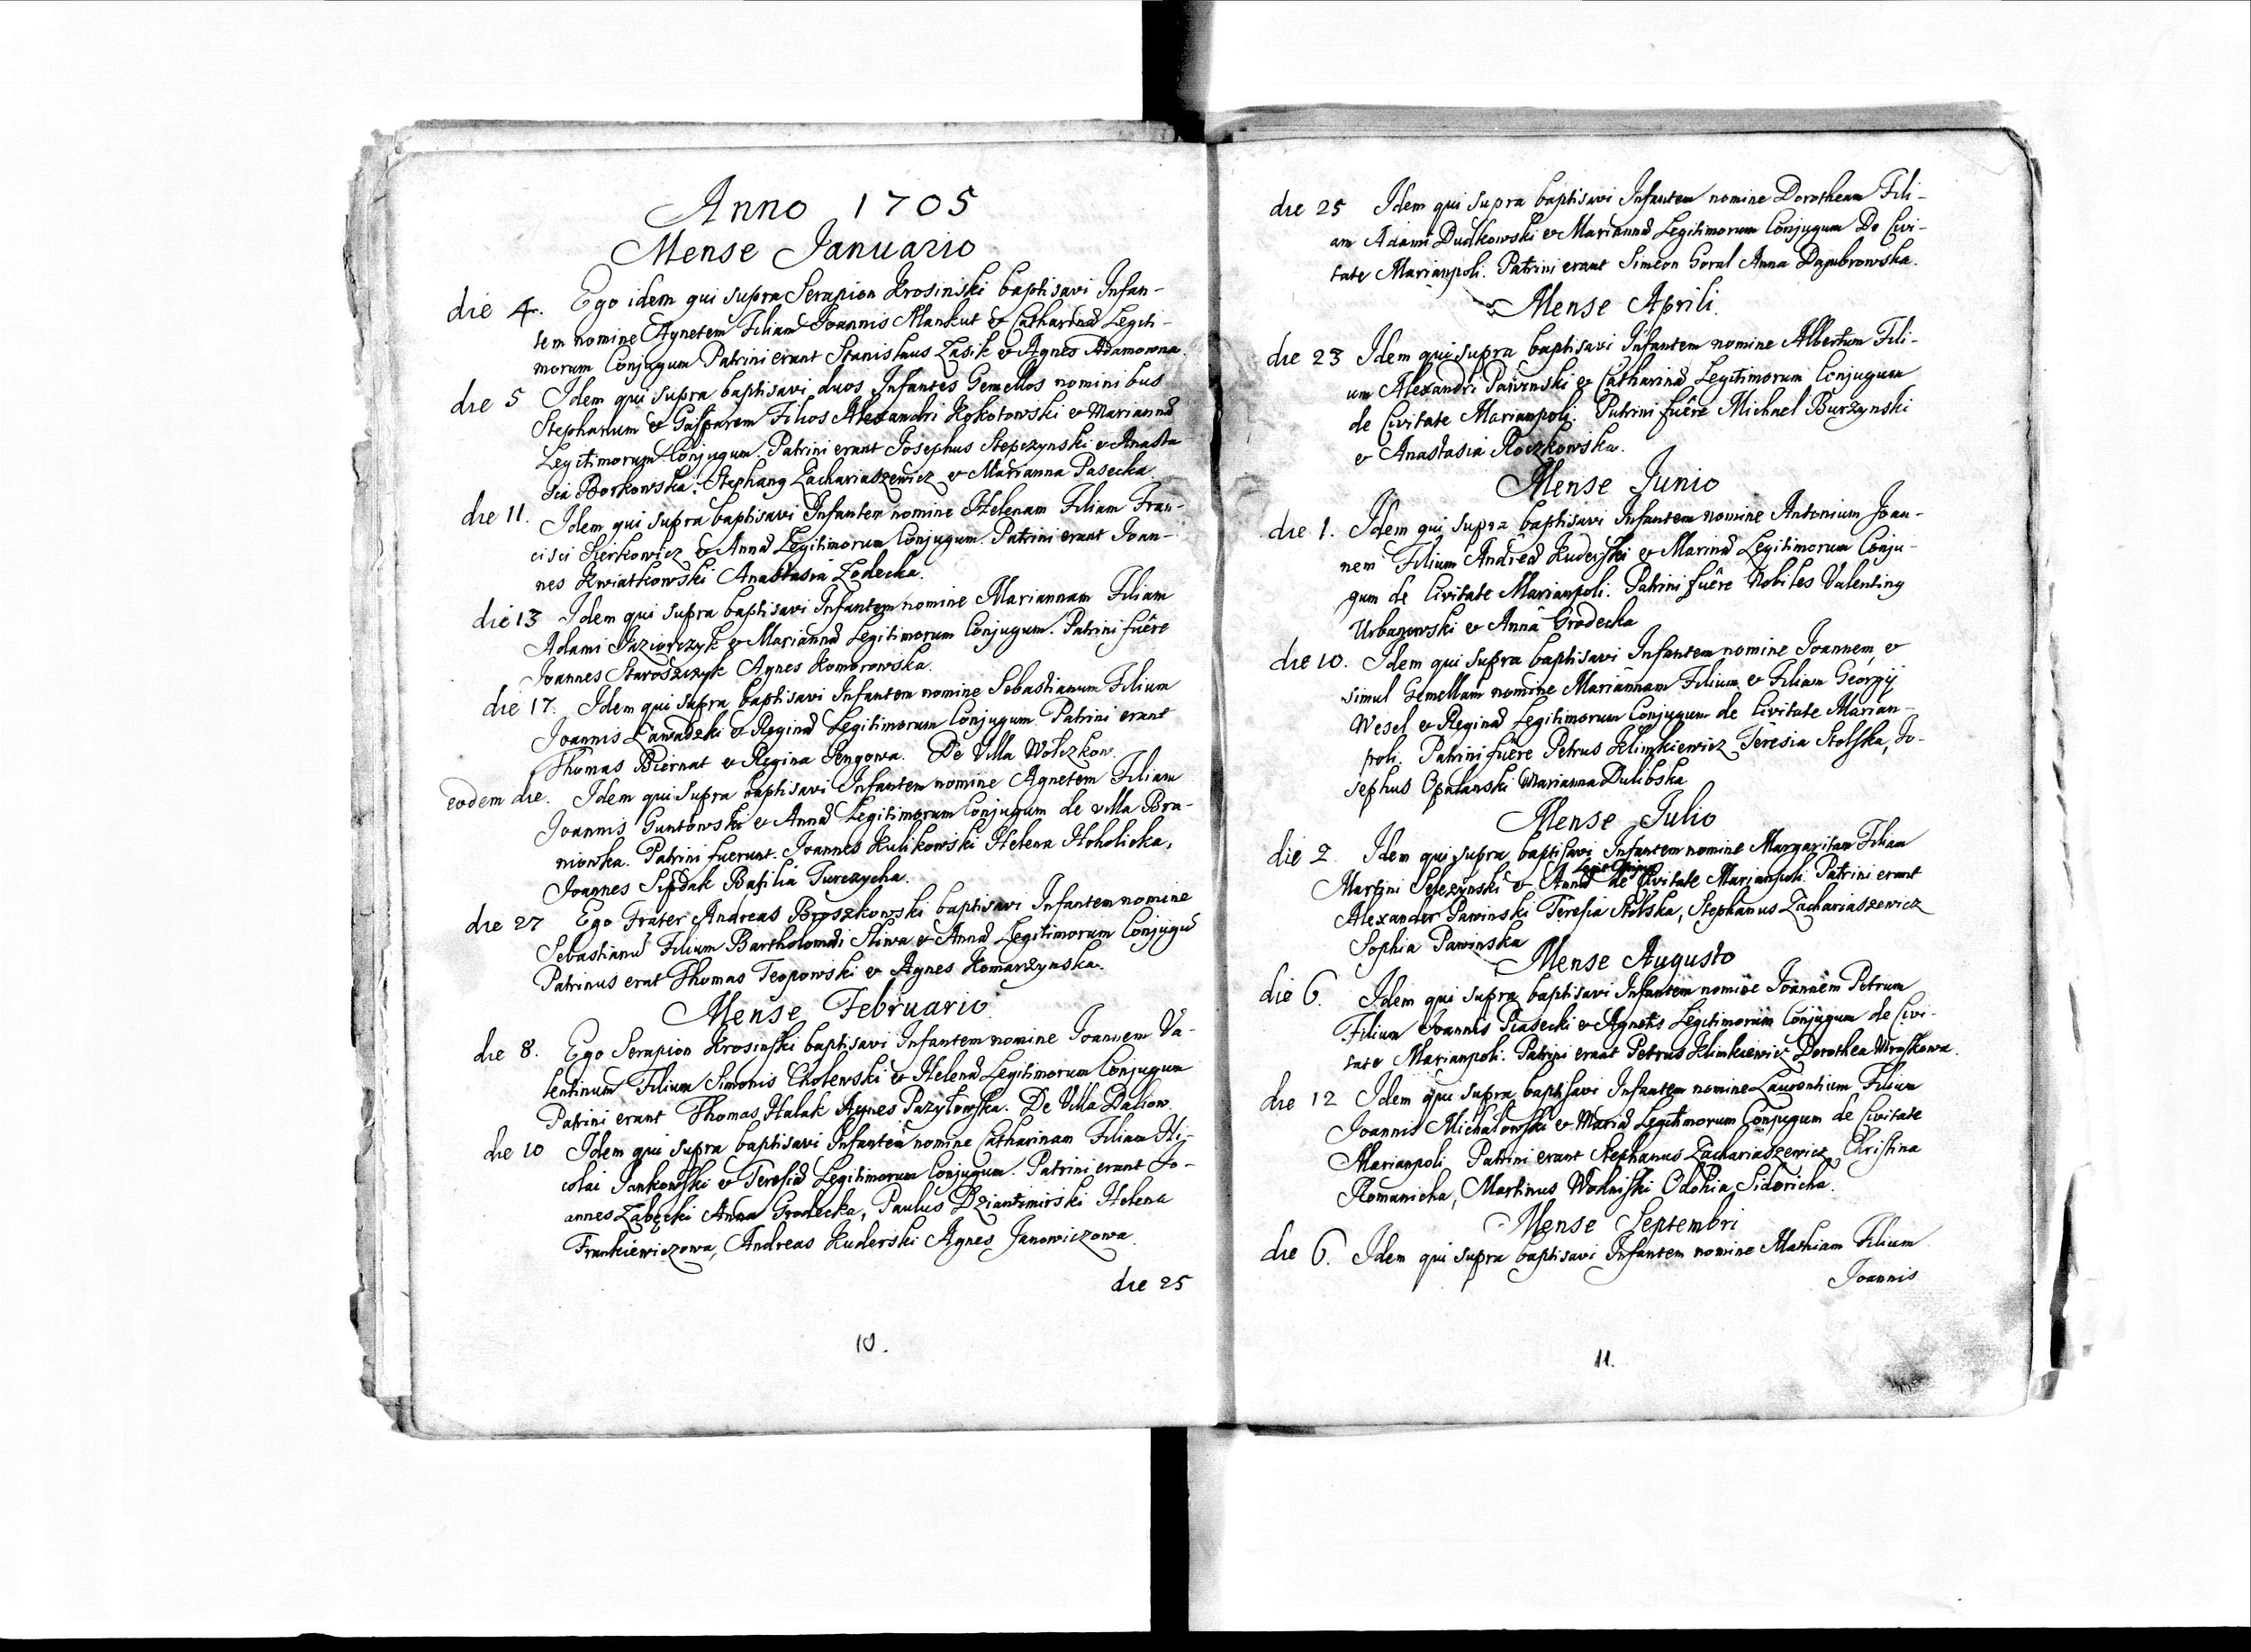 Anno 1705
Mense Januario
die 4. Ego idem qui supra Serapion Krosinski baptisavi Infan-
tem nomine Agnetem Filiam Joannis Mankut & Catharinæ Legiti-
morum Conjugum Patrini erant Stanislaus Zasik & Agnes Adamowna.
die 5 Idem qui supra baptisavi duos Infantes Gemellos nominibus
Stephanum & Gasparem Filios Alexandri Kokotowski & Mariannæ
Legitimorum Conjugum. Patrini erant Josephus Stepczynski & Anasta
sia Borkowska: Stephanꝰ Zachariaszewicz & Marianna Pasecka
die 11. Idem qui supra baptisavi Infantem nomine Helenam Filiam Fran-
cisci Sierkowicz & Annæ Legitimorum Conjugum. Patrini erant Joan-
nes Kwiatkowski Anastasia Zedecka.
die 13 Idem qui supra baptisavi Infantem nomine Mariannam Filiam
Adami Jaziorczyk & Mariannæ Legitimorum Conjugum. Patrini fuêre
Joannes Staroszczyk Agnes Komorowska.
die 17. Idem qui supra baptisavi Infantem nomine Sebastianum Filium
Joannis Zawadzki & Reginæ Legitimorum Conjugum. Patrini erant
Thomas Biernat & Regina Pengowa. De Villa Wołczkow.
eodem die. Idem qui supra baptisavi Infantem nomine Agnetem Filiam
Joannis Guntowski & Annæ Legitimorum Conjugum de villa Bra-
niowka. Patrini fuerunt. Joannes Kulikowski Helena Hoholicka,
Joannes Sipdak Basilia Turczycha.
die 27 Ego Frater Andreas Broszkowski baptisavi Infantem nomine
Sebastianū Filium Bartholomæi Sliwa & Annæ Legitimorum Conjugū
Patrinus erat Thomas Teopowski & Agnes Komarzynska.
Mense Februario
die 8. Ego Serapion Krosinski baptisavi Infantem nomine Joannem Va-
lentinum Filium Simonis Cholewski & Helenæ Legitimorum Conjugum
Patrini erant Thomas Halak Agnes Pazyłowska. De Villa Daliow.
die 10 Idem qui supra baptisavi Infantem nomine Catharinam Filiam Ni-
colai Jankowski & Teresiæ Legitimorum Conjugum. Patrini erant Jo-
annes Zabęcki Anna Grodecka, Paulus Dziantmirski Helena
Frankiewiczowa, Andreas Kuderski Agnes Janowiczowa.
die 25
10.
die 25 Idem qui supra baptisavi Infantem nomine Dorotheam Fili-
am Adami Dudkowski & Mariannæ Legitimorum Conjugum De Civi-
tate Marianpoli. Patrini erant Simeon Goral Anna Dąmbrowska.
Mense Aprili.
die 23 Idem qui supra baptisavi Infantem nomine Albertum Fili-
um Alexandri Pawinski & Catharinæ Legitimorum Conjugum
de Civitate Marianpoli. Patrini fuêre Michael Burzynski
& Anastasia Roczkowska.
Mense Junio
die 1. Idem qui supra baptisavi Infantem nomine Antonium Joan-
nem Filium Andreæ Kuderski & Marinæ Legitimorum Conju-
gum de Civitate Marianpoli. Patrini fuêre Nobiles Valentinꝰ
Urbanowski & Anna Grodecka
die 10. Idem qui supra baptisavi Infantem nomine Joannem, &
simul Gemellam nomine Mariannam Filium & Filiam Georgij
Wesel & Reginæ Legitimorum Conjugum de Civitate Marian-
poli. Patrini fuêre Petrus Klimkiewicz Teresia Stolska, Jo-
sephus Opalanski Marianna Dulibska
Mense Julio
die 2 Idem qui supra baptisavi Infantem nomine Margaritam Filiam
Martini Seleżynski & Annæ de Civitate Marianpoli. Patrini erant
Alexander Pawinski Teresia Stolska, Stephanus Zachariaszewicz
Sophia Pawinska
Mense Augusto
die 6. Idem qui supra baptisavi Infantem nomine Joannem Petrum
Filium Joannis Piasecki & Agnetis Legitimorum Conjugum de Civi-
tate Marianpoli. Patrini erant Petrus Klimkiewicz Dorothea Wroskowa.
die 12 Idem qui supra baptisavi Infantem nomine Laurentium Filium
Joannis Michałowski & Mariæ Legitimorum Conjugum de Civitate
Marianpoli Patrini erant Stephanus Zachariaszewicz Christina
Romanicha, Martinus Wodniski Odohia Sidoricha.
Mense Septembri
die 6. Idem qui supra baptisavi Infantem nomine Mathiam Filium
Joannis
11.